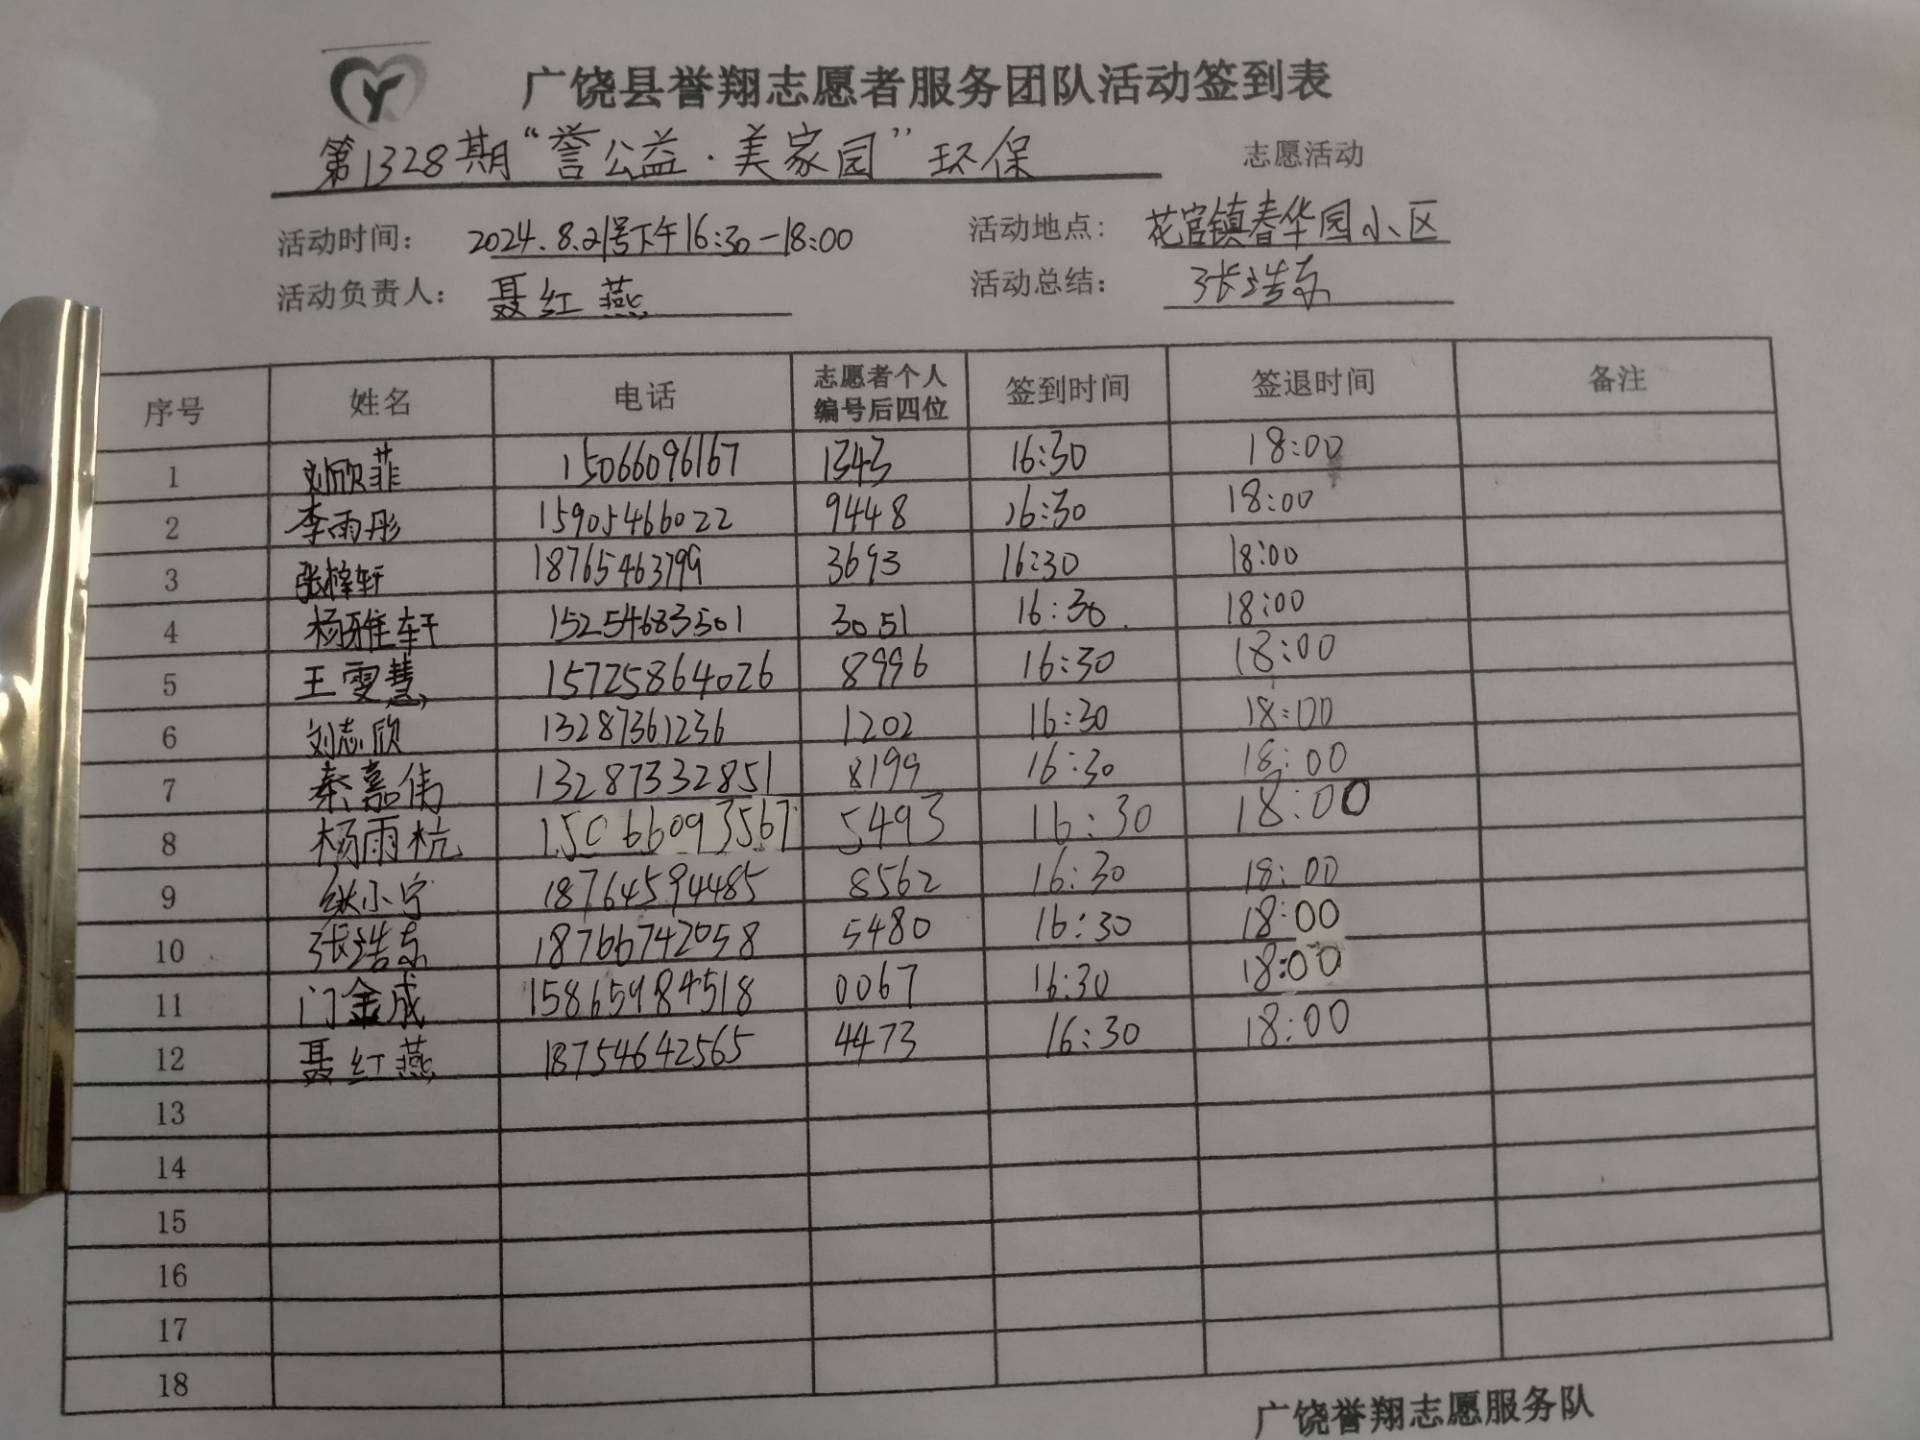 广饶县誉翔志愿者服务团队活动签到表
第1328期“誉公益·美家园”环保 志愿活动
活动时间： 2024.8.21号下午16:30-18:00 活动地点： 花官镇春华园小区
活动负责人： 聂红燕 活动总结： 张浩东
序号 姓名 电话 志愿者个人编号后四位 签到时间 签退时间 备注
1 刘欣菲 15066096167 1343 16:30 18:00
2 李雨彤 15905466022 9448 16:30 18:00
3 张梓轩 18765463799 3693 16:30 18:00
4 杨雅轩 15254683501 3051 16:30 18:00
5 王雯慧 15725864026 8996 16:30 18:00
6 刘志欣 13287361236 1202 16:30 18:00
7 秦嘉伟 13287332851 8199 16:30 18:00
8 杨雨杭 15066093567 5493 16:30 18:00
9 小宁 18764594485 8562 16:30 18:00
10 张浩东 18766742058 5480 16:30 18:00
11 门金成 15865984518 0067 16:30 18:00
12 聂红燕 18754642565 4473 16:30 18:00
13
14
15
16
17
18
广饶誉翔志愿服务队